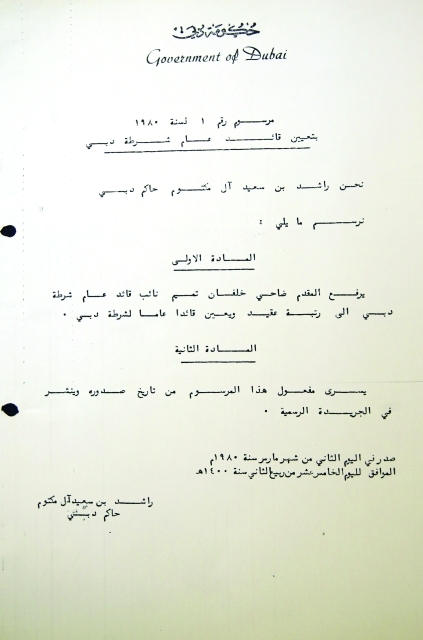 حكومة دبي
Government of Dubai
مرسوم رقم ١ لسنة ١٩٨٠
بتعيين قائد عام شرطة دبي
نحن راشد بن سعيد آل مكتوم حاكم دبي
نرسم ما يلي :
المادة الاولى
يرفع المقدم ضاحي خلفان تميم نائب قائد عام شرطة
دبي الى رتبة عقيد ويعين قائدا عاما لشرطة دبي .
المادة الثانية
يسرى مفعول هذا المرسوم من تاريخ صدوره وينشر
في الجريدة الرسمية .
صدر في اليوم الثاني من شهر مارس سنة ١٩٨٠م
الموافق لليوم الخامس عشر من ربيع الثاني سنة ١٤٠٠هـ
راشد بن سعيد آل مكتوم
حاكم دبي